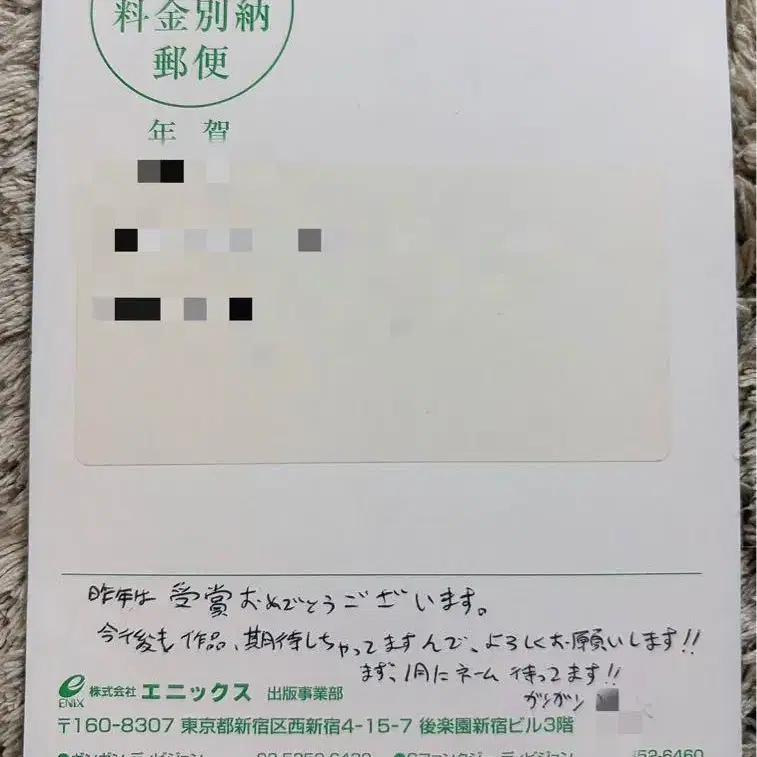 料金別納
郵便
年賀
昨年は受賞おめでとうございます。
今後も作品、期待しちゃってますんで、よろしくお願いします!!
まず、1月にネーム待ってます!!
ガンガン
ENIX 株式会社エニックス 出版事業部
〒160-8307 東京都新宿区西新宿4-15-7 後楽園新宿ビル3階